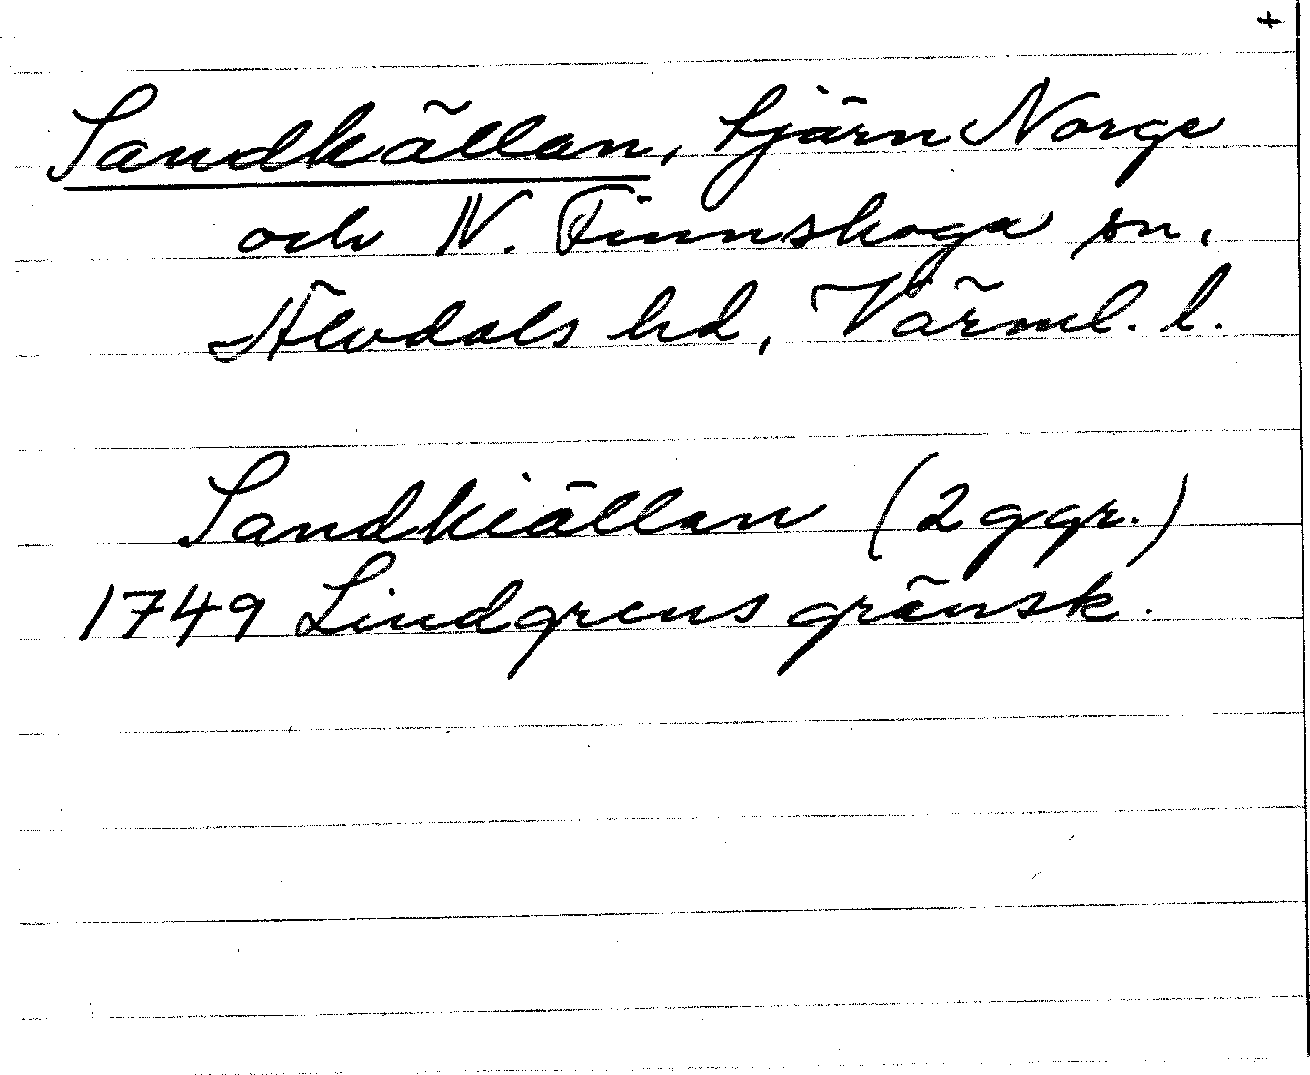 +
Sandkällan, tjärn Norge
och N. Finnskoga sn,
Älvdals hd, Värml. l.
Sandkiällan (2 ggr.)
1749 Lindgrens gränsk.